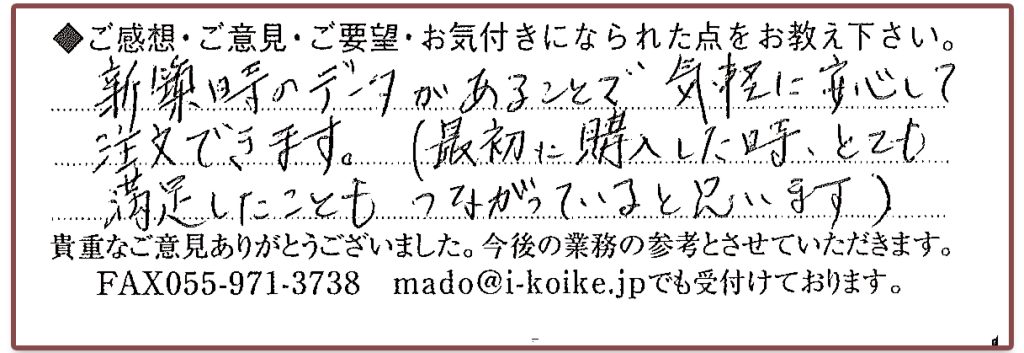 ◆ご感想・ご意見・ご要望・お気付きになられた点をお教え下さい。
新築時のデータがあることで 気軽に安心して
注文できます。(最初に購入した時、とても
満足したことも つながっていると思います)
貴重なご意見ありがとうございました。今後の業務の参考とさせていただきます。
FAX055-971-3738 mado@i-koike.jpでも受付けております。